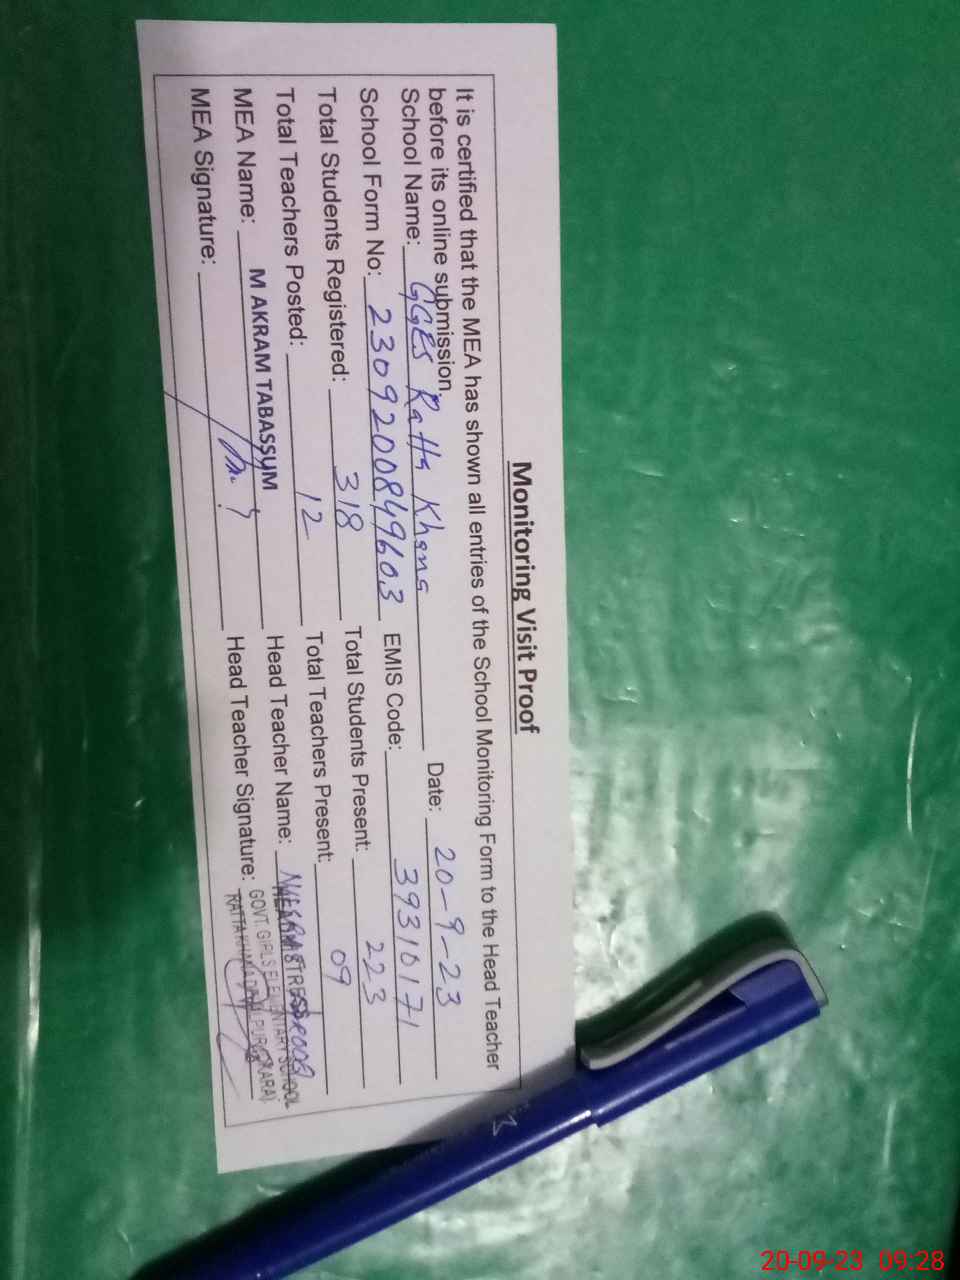 Monitoring Visit Proof
It is certified that the MEA has shown all entries of the School Monitoring Form to the Head Teacher
before its online submission.
School Name: GGES Ratta Khana Date: 20-9-23
School Form No: 2309200849603 EMIS Code: 39310171
Total Students Registered: 318 Total Students Present: 223
Total Teachers Posted: 12 Total Teachers Present: 09
MEA Name: M AKRAM TABASSUM Head Teacher Name:
MEA Signature: Head Teacher Signature:
HEADMISTRESS
GOVT. GIRLS ELEMENTARY SCHOOL
RATTA KHANA
20-09-23 09:28